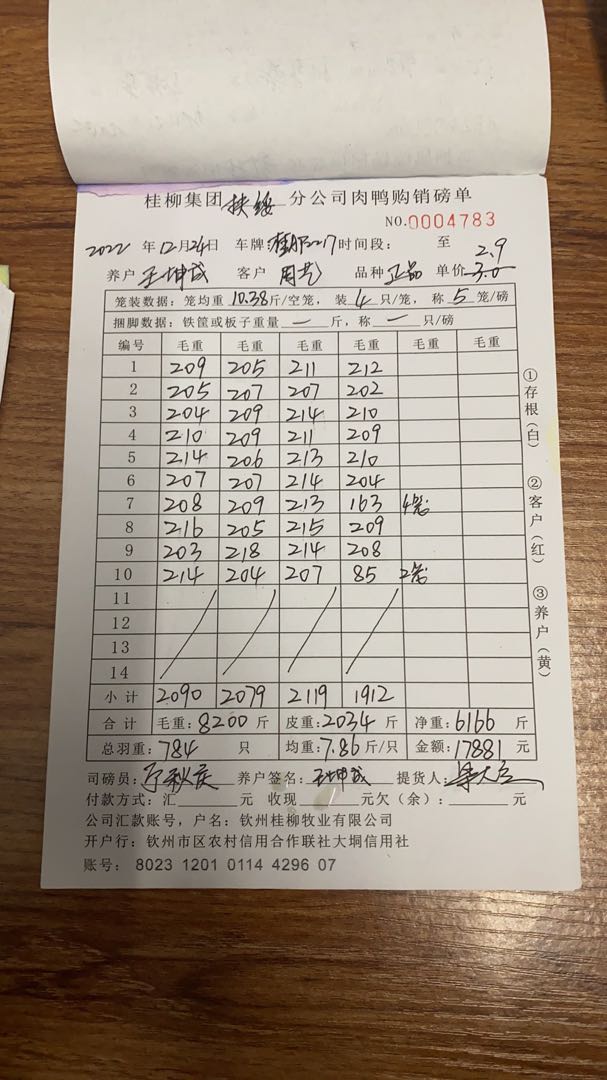 桂柳集团扶绥分公司肉鸭购销磅单
NO.0004783
2022年12月24日 车牌:桂 2217 时间段: 至
2.9
养户 王坤成 客户 周 品种 正品 单价 3.0
笼装数据:笼均重10.38斤/空笼,装4只/笼,称5笼/磅
捆脚数据:铁筐或板子重量 — 斤,称 — 只/磅
编号 毛重 毛重 毛重 毛重 毛重 毛重
1 209 205 211 212
2 205 207 207 202
3 204 209 214 210
4 210 209 211 209
5 214 206 213 210
6 207 207 214 204
7 208 209 213 163 4笼
8 216 205 215 209
9 203 218 214 208
10 214 204 207 85 2笼
11
12
13
14
小计 2090 2079 2119 1912
合计 毛重:8200斤 皮重:2034斤 净重:6166斤
总羽重:784只 均重:7.86斤/只 金额:17881元
司磅员: 养户签名:王坤成 提货人:
付款方式:汇 元 收现 元欠(余): 元
公司汇款账号,户名:钦州桂柳牧业有限公司
开户行:钦州市区农村信用合作联社大垌信用社
账号: 8023 1201 0114 4296 07
①存根(白) ②客户(红) ③养户(黄)